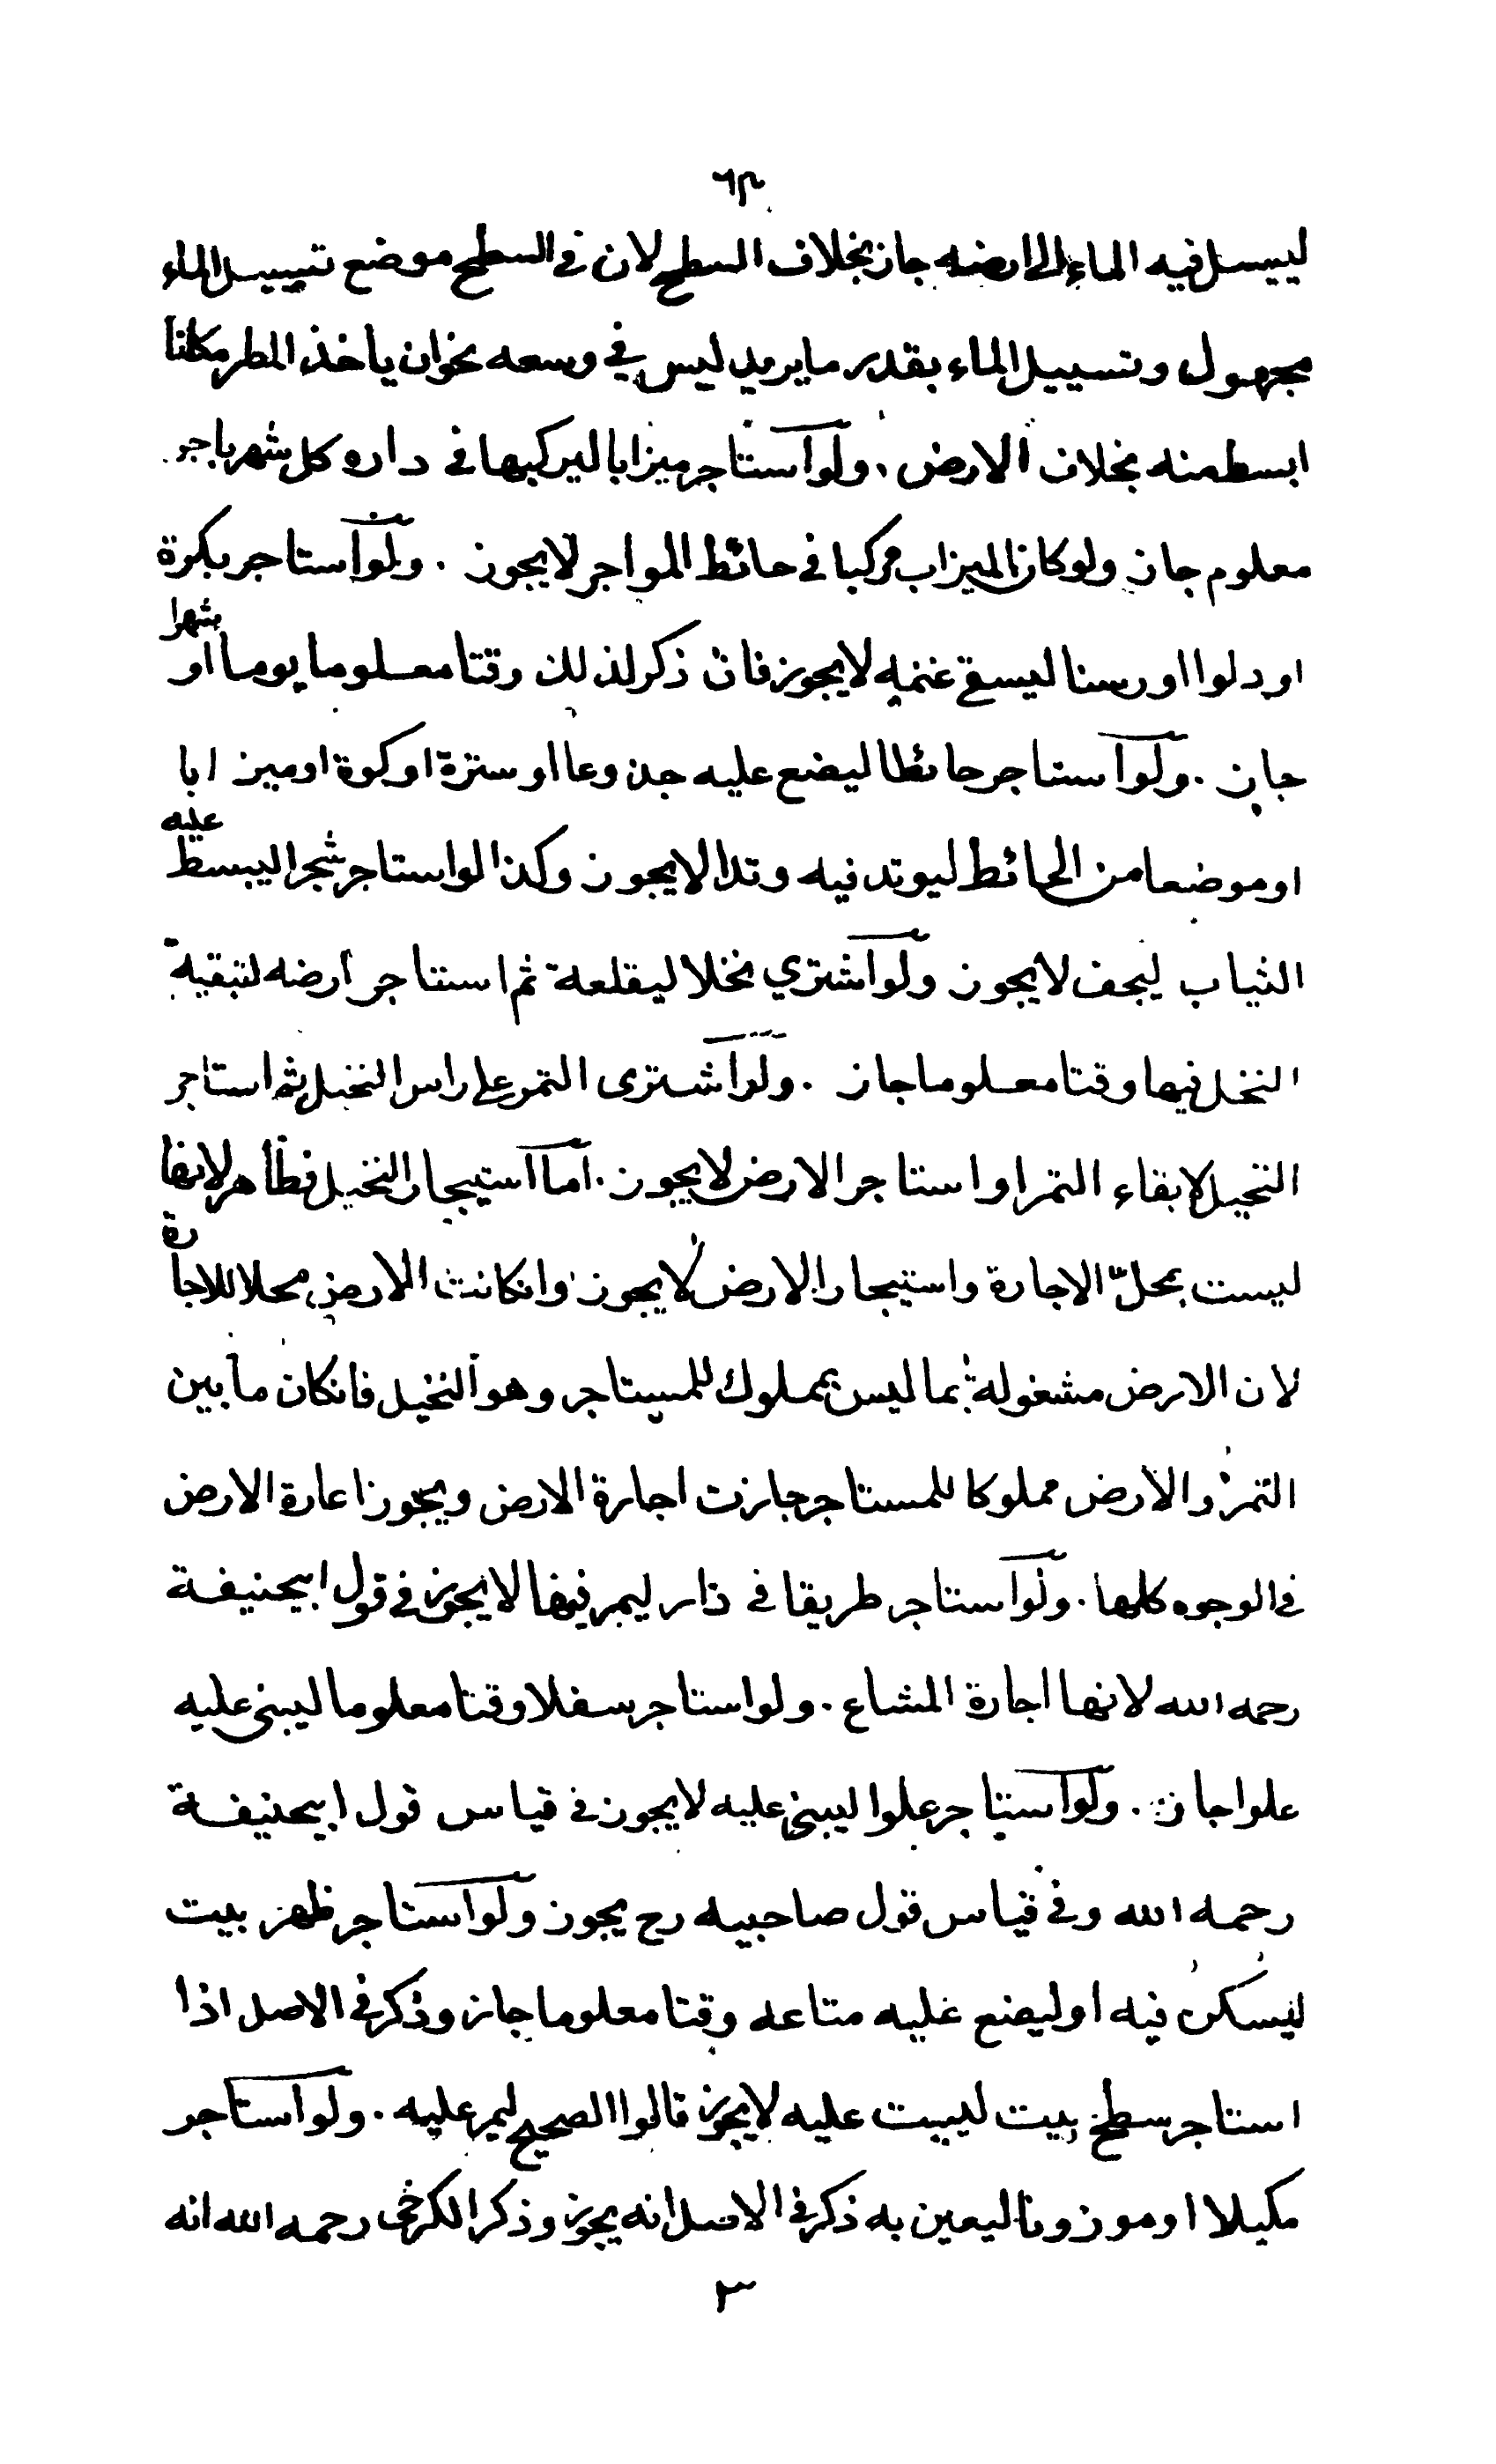 ٦٢
ليسيل فيه الماء الى ارضه جاز بخلاف السطح لان في السطح موضع تسييل الماء
مجهول وتسييل الماء بقدر ما يريد ليس في وسعه نحو ان ياخذ المطر مكانا
ابسط منه بخلاف الارض . ولو استاجر ميزابا ليركبها في داره كل شهر باجر
معلوم جاز ولو كان الميزاب مركبا في حائط المواجر لا يجوز . ولو استاجر بكرة
او دلوا او رسنا ليسقي غنمه لا يجوز فان ذكر لذلك وقتا معلوما يوما او شهرا
جاز . ولو استاجر حائطا ليضع عليه جذوعا او سترة او كوة او ميزابا
او موضعا من الحائط ليوتد فيه وتدا لا يجوز وكذا لو استاجر شجرا ليبسط عليه
الثياب ليجف لا يجوز ولو اشتري نخلا ليقلعة ثم استاجر ارضه لتبقية
النخل فيها وقتا معلوما جاز . ولو اشترى التمر على راس النخيل ثم استاجر
النخيل لابقاء التمر او استاجر الارض لا يجوز . اما استيجار النخيل فظاهر لانها
ليست بمحلّ الاجارة واستيجار الارض لا يجوز وانكانت الارض محلا للاجارة
لان الارض مشغولة بما ليس بمملوك للمستاجر وهو النخيل فانكان ما بين
التمر والارض مملوكا للمستاجر جازت اجارة الارض ويجوز اعارة الارض
في الوجوه كلها . ولو استاجر طريقا في دار ليمر فيها لا يجوز في قول ابيحنيفة
رحمه الله لانها اجارة المشاع . ولو استاجر سفلا وقتا معلوما ليبنى عليه
علوا جاز . ولو استاجر علوا ليبنى عليه لا يجوز في قياس قول ابيحنيفة
رحمه الله وفي قياس قول صاحبيه رح يجوز ولو استاجر ظهر بيت
ليسكن فيه او ليضع عليه متاعه وقتا معلوما جاز وذكر في الاصل اذا
استاجر سطح بيت ليبيت عليه لا يجوز قالوا الصحيح ليمر عليه . ولو استاجر
مكيلا او موزونا ليعين به ذكر في الاصل انه يجوز وذكر الكرخي رحمه الله انه
٣